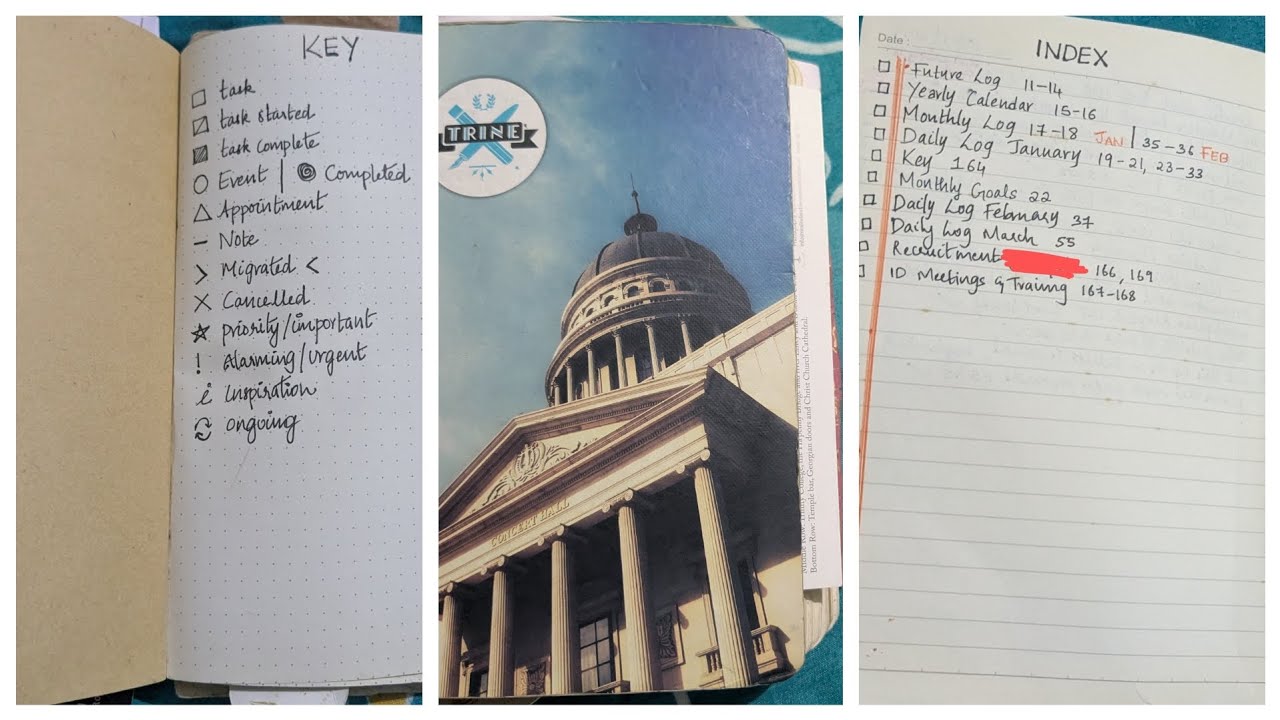 KEY
task
task started
task complete
Event | Completed
Appointment
– Note
> Migrated <
X Cancelled
priority/important
! Alarming/urgent
i Inspiration
ongoing
TRINE
CONCERT HALL
Bottom Row: Temple bar, Georgian doors and Christ Church Cathedral.
Date :
INDEX
Future Log 11-14
Yearly Calendar 15-16
Monthly Log 17-18 JAN | 35-36 FEB
Daily Log January 19-21, 23-33
Key 164
Monthly Goals 22
Daily Log February 37
Daily Log March 55
Recruitment 166, 169
1D Meetings & Traing 167-168